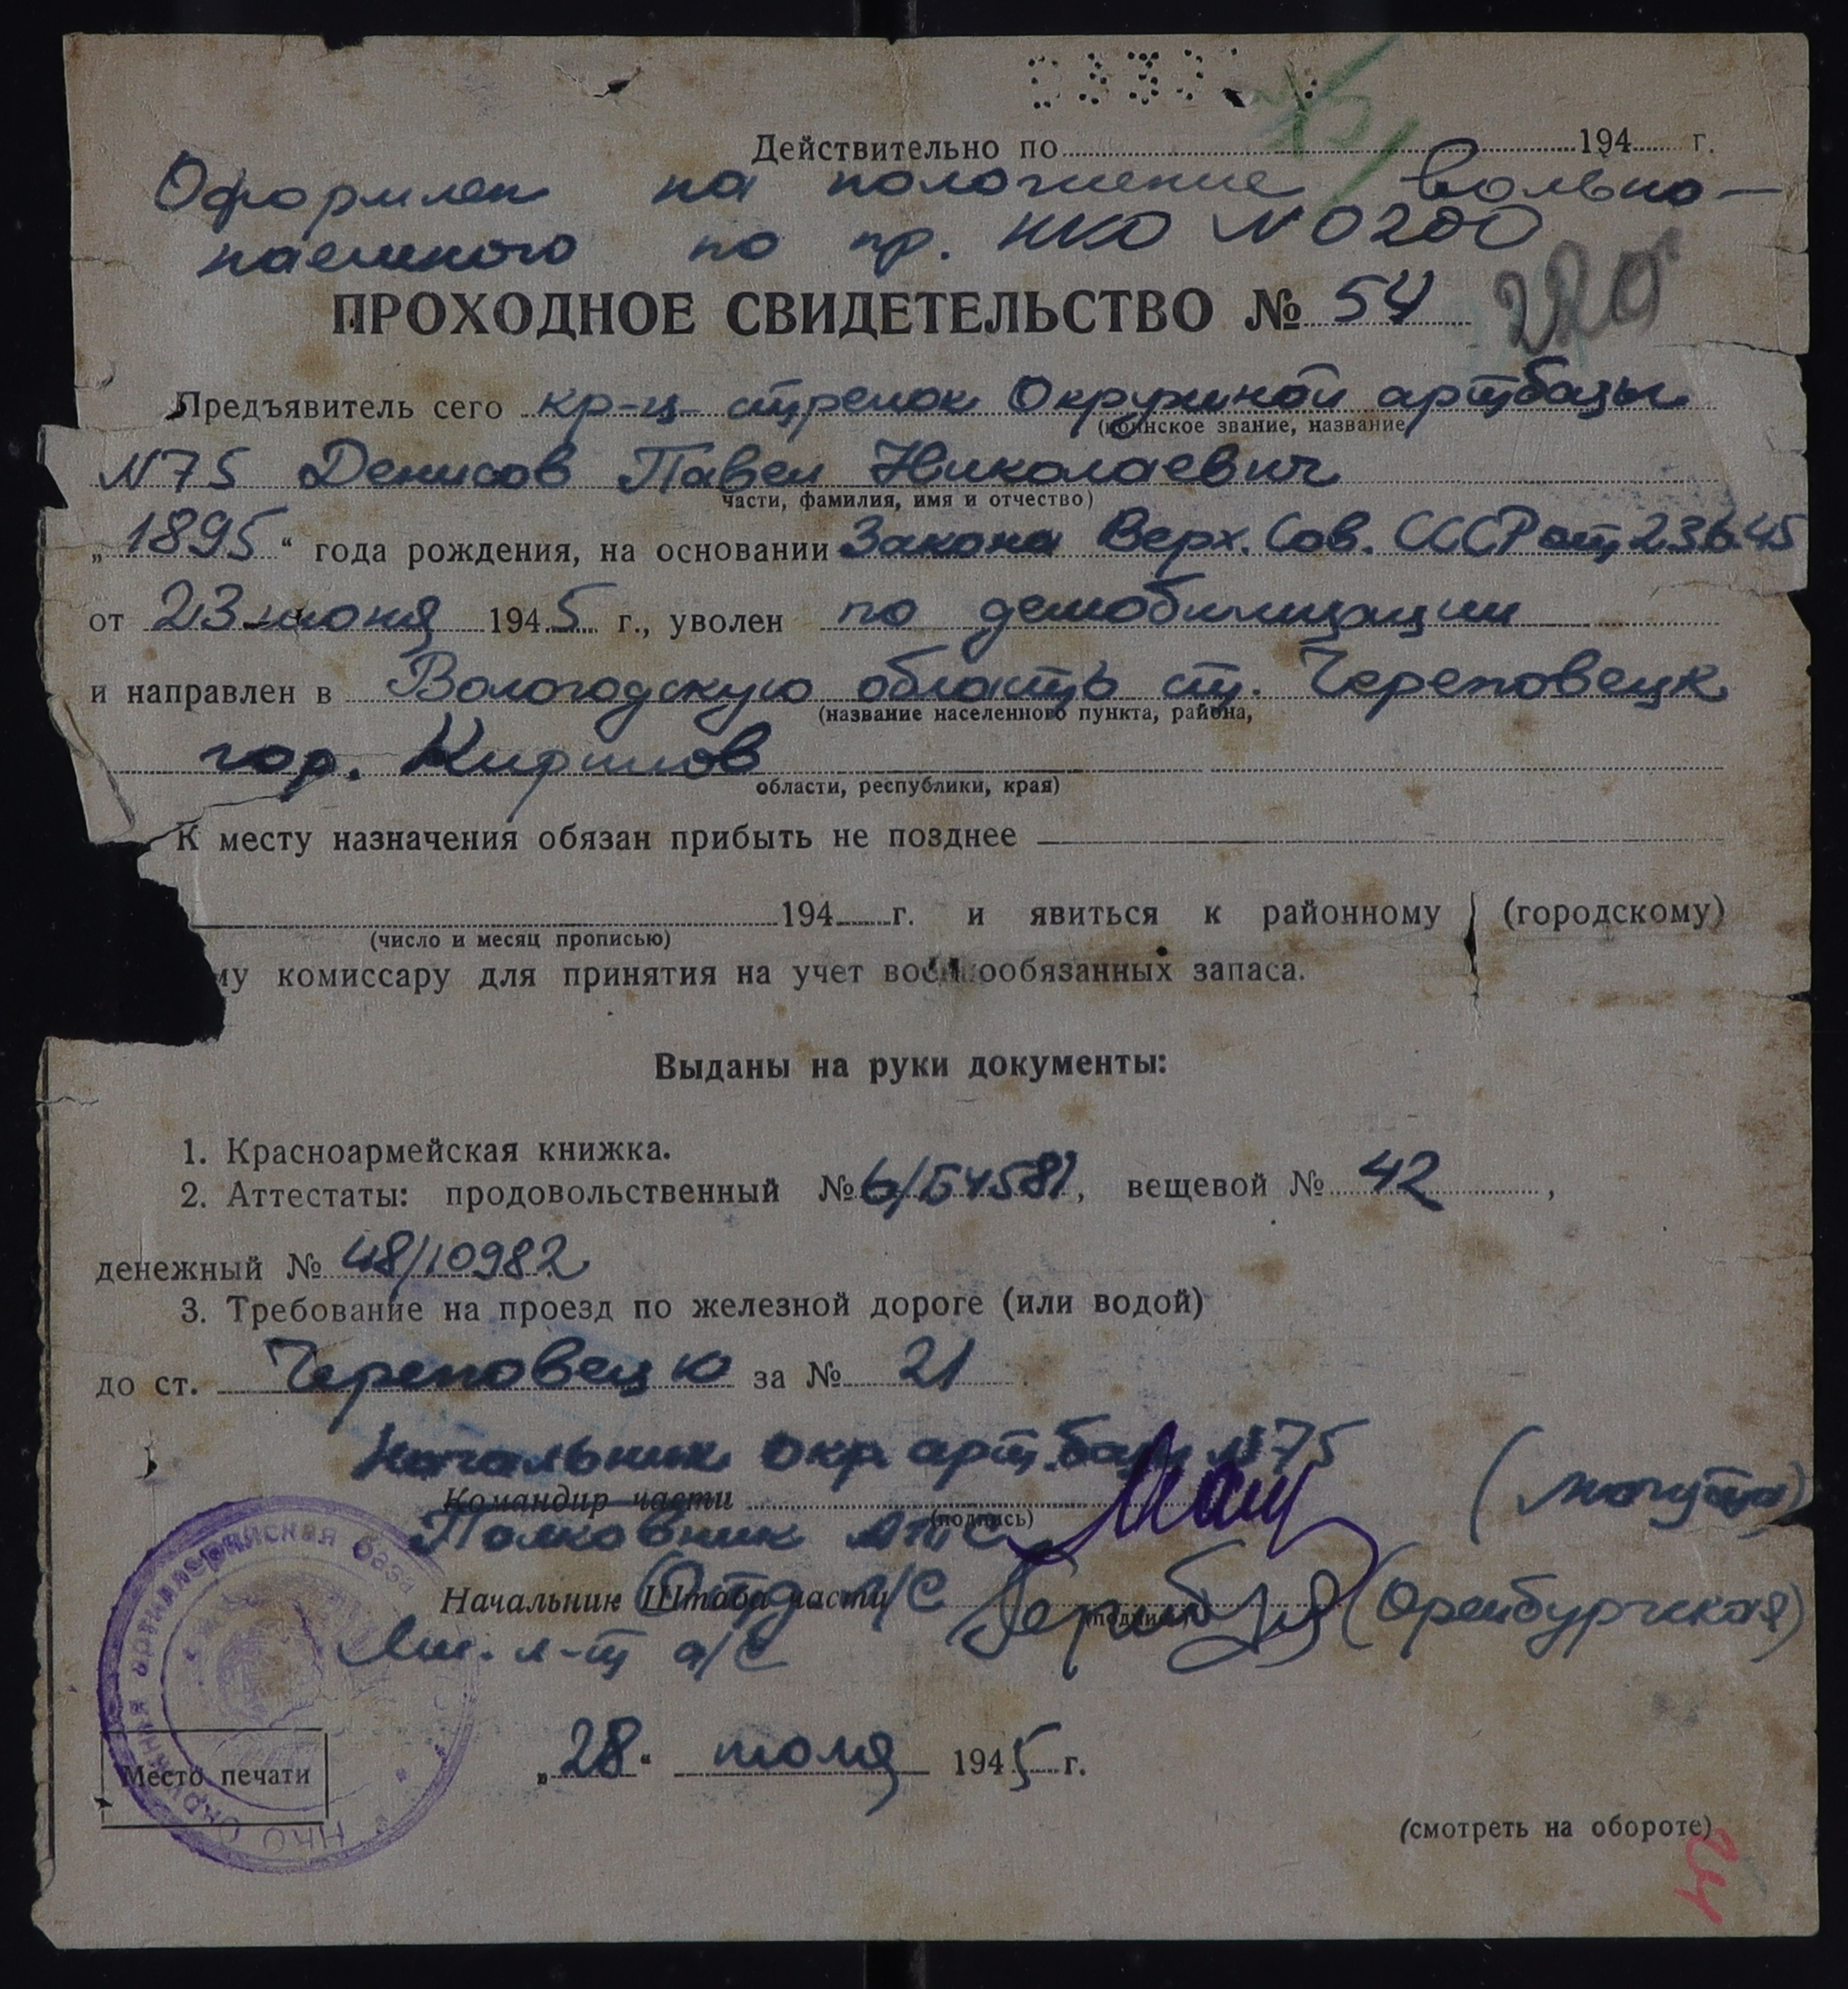 Действительно по 194 г.
Оформлен на положение вольно-
наемного по пр. НКО № 0200
ПРОХОДНОЕ СВИДЕТЕЛЬСТВО № 54
220
Предъявитель сего кр-ц стрелок Окружной артбазы
(воинское звание, название
№ 75 Денисов Павел Николаевич
части, фамилия, имя и отчество)
„1895“ года рождения, на основании Закона Верх. Сов. СССР от 23.6.45
от 23 июня 1945 г., уволен по демобилизации
и направлен в Вологодскую область ст. Череповецк
(название населенного пункта, района,
гор. Кириллов
области, республики, края)
К месту назначения обязан прибыть не позднее
194 г. и явиться к районному (городскому)
(число и месяц прописью)
му комиссару для принятия на учет военнообязанных запаса.
Выданы на руки документы:
1. Красноармейская книжка.
2. Аттестаты: продовольственный № 6/54581, вещевой № 42,
денежный № 48/10982
3. Требование на проезд по железной дороге (или водой)
до ст. Череповецк за № 21
Начальник окр. арт. базы № 75
Командир части
(подпись)
Полковник (Могута)
Начальник Штаба части
Отд. л/с (Оренбургская)
(подпись)
Мл. л-т а/с
окружная артиллерийская база
НКО
Место печати
„28“ июля 1945 г.
(смотреть на обороте)
24